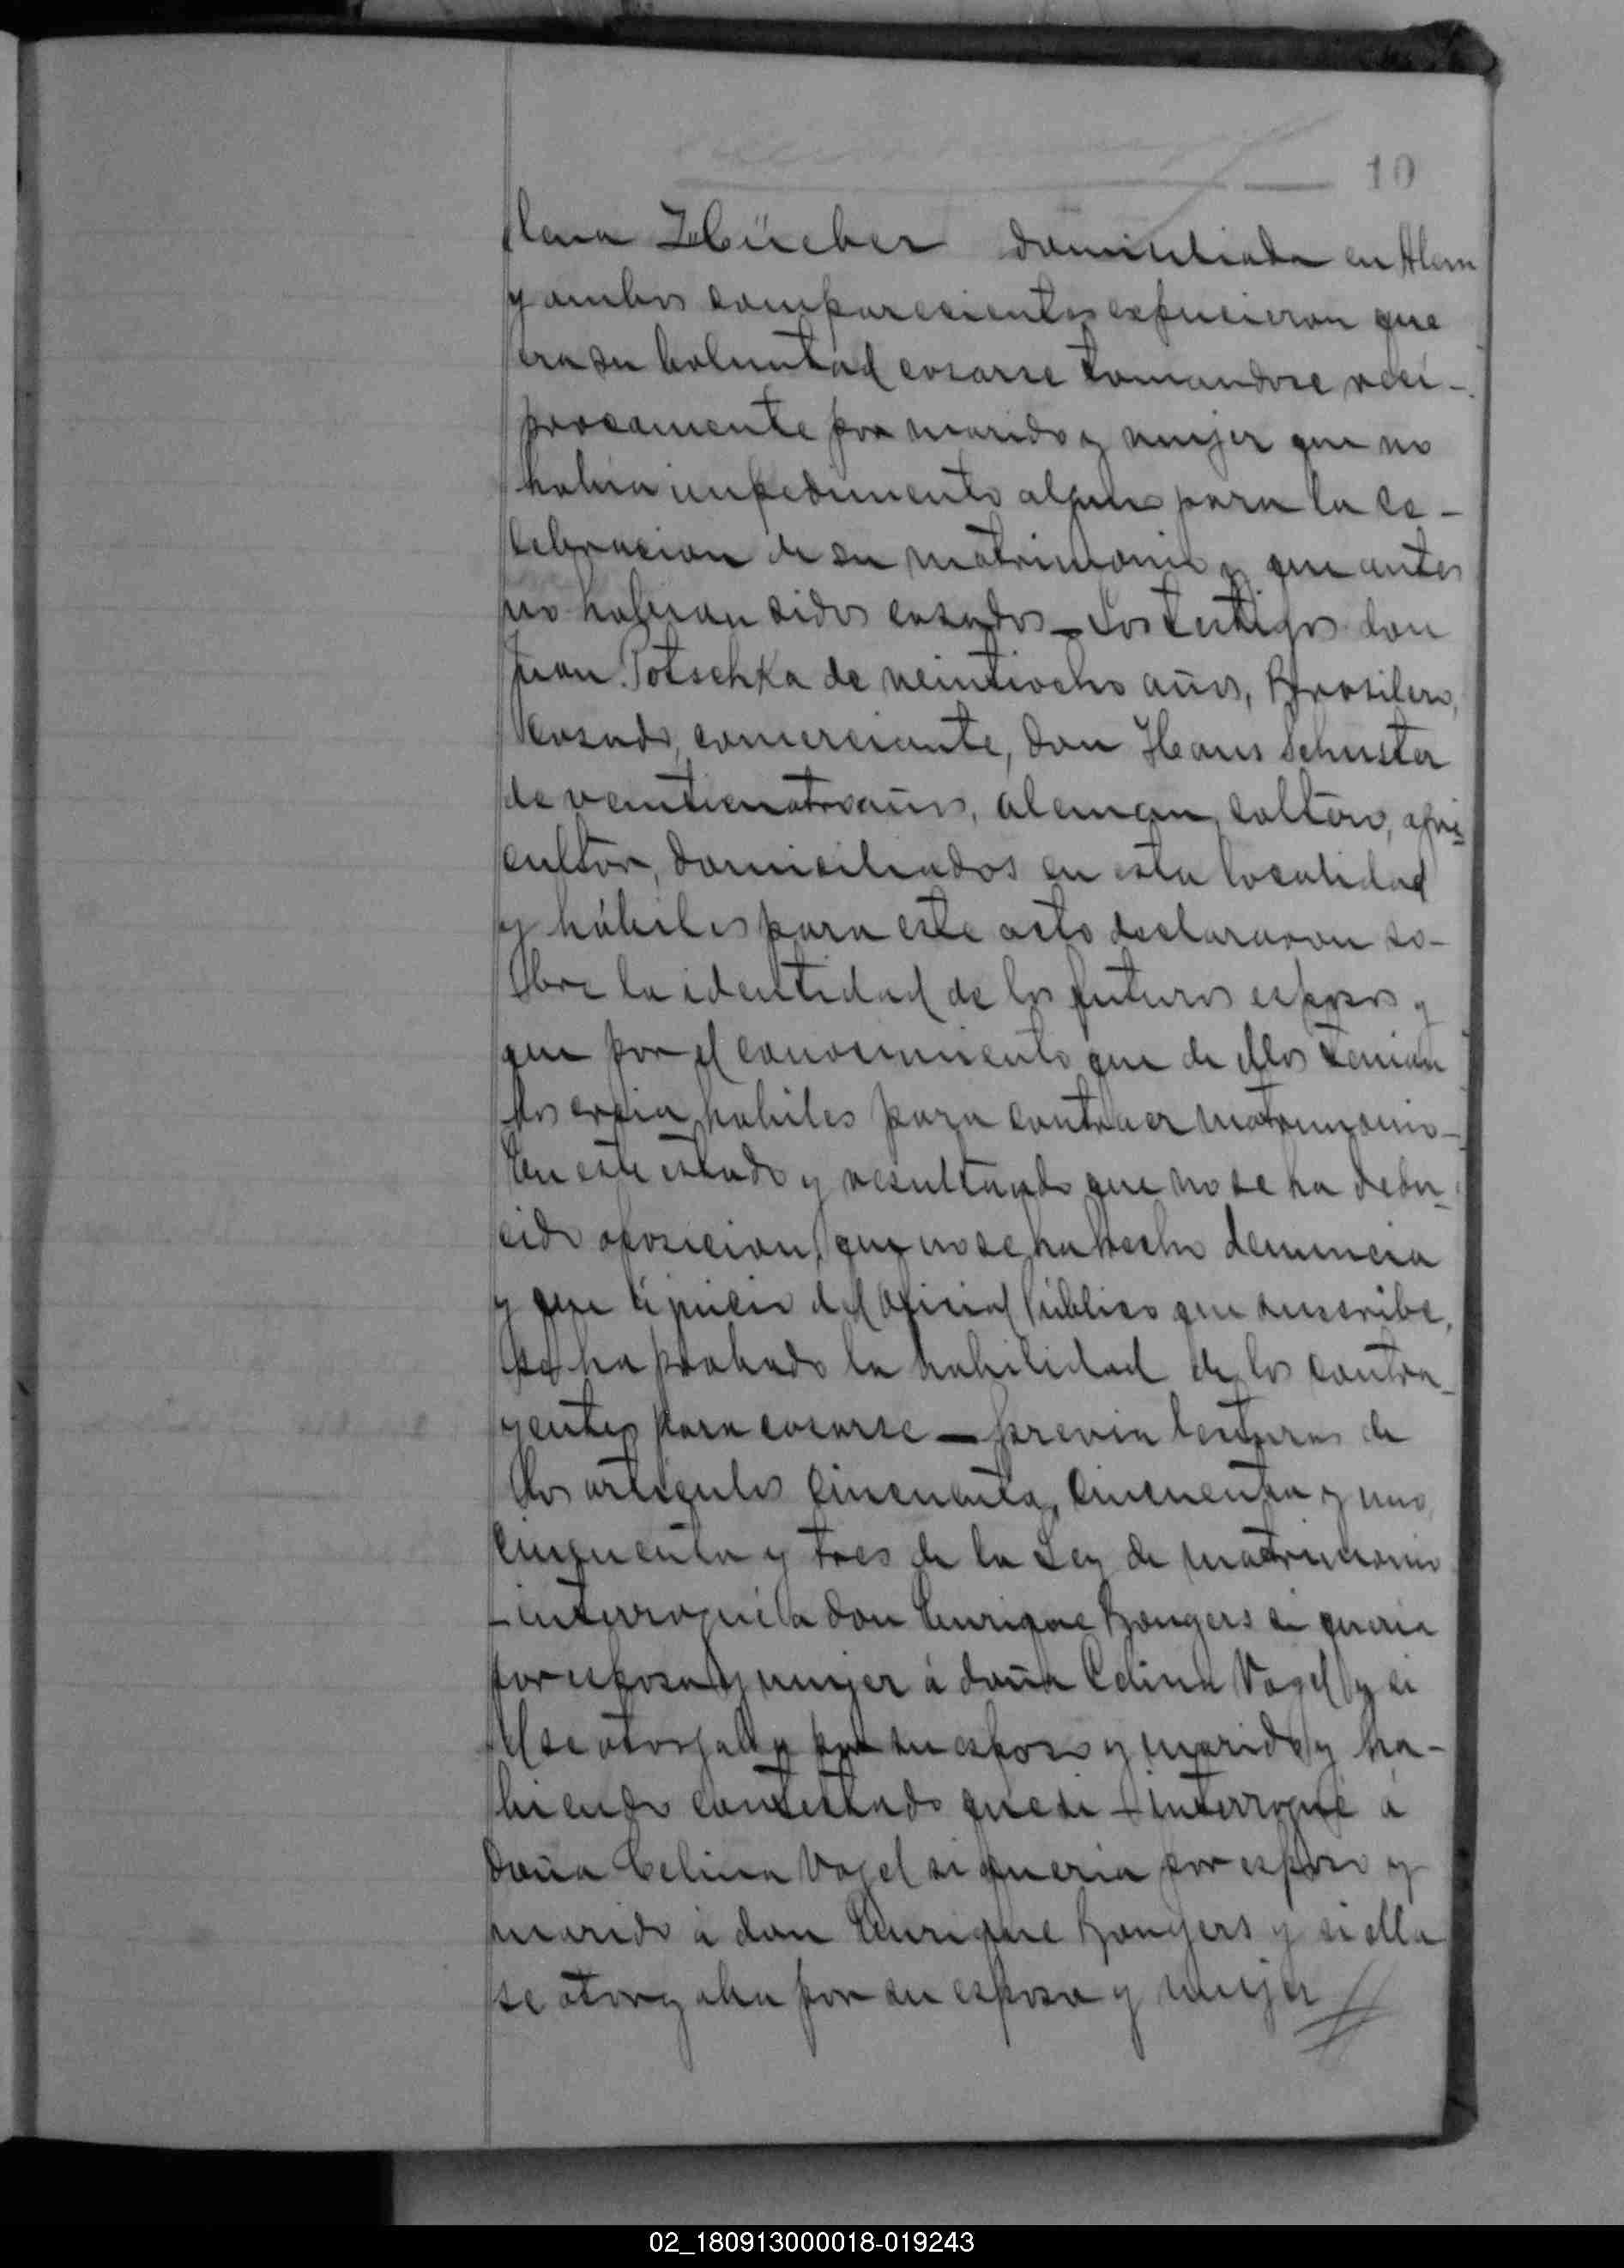 10
lena Hücher domiciliada en Alem
y ambos comparecientes expucieron que
era su boluntad casarse tomandose reci-
procamente por marido y mujer que no
habia impedimento alguno para la ce-
lebracion de su matrimonio y que antes
no habian sidos casados - Los testigos don
Juan Potschka de veintiocho años, Brasilero,
casado, comerciante, don Hans Schuster
de veinticuatro años, aleman, soltero, agri-
cultor, domiciliados en esta localidad
y hábiles para este acto declararon so-
bre la identidad de los futuros esposos y
que por el conocimiento que de ellos tenian
los creia habiles para contraer matrimonio -
En este estado y resultando que no se ha dedu-
cido oposicion, que no se ha hecho denuncia
y que á juicio del Oficial Público que suscribe,
se ha probado la habilidad de los contra-
yentes para casarse - previa lectura de
los articulos cincuenta, cincuenta y uno,
cinquenta y tres de la Ley de matrimonio
- interrogué a don Enrique Bongers si queria
por esposa y mujer á doña Celina Vogel y si
el se otorgaba por su esposo y marido y ha-
biendo contestado que si - interrogué á
doña Celina Vogel si queria por esposo y
marido á don Enrique Bongers y si ella
se otorgaba por su esposa y mujer //
02_180913000018-019243